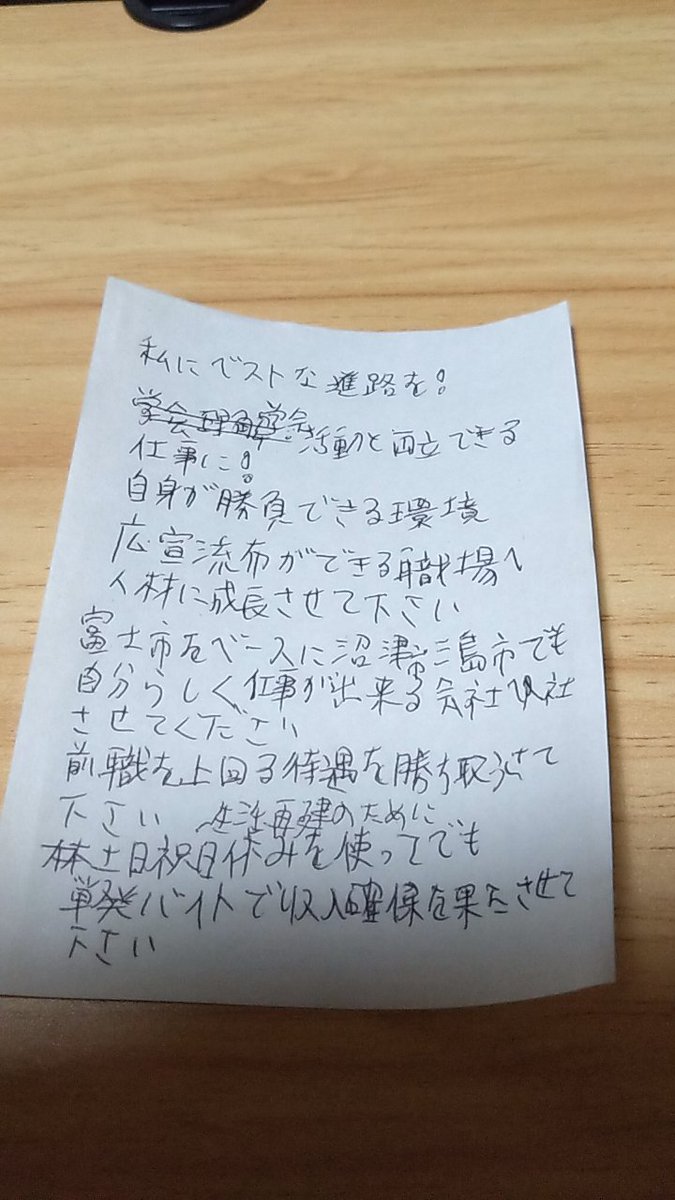 私にベストな進路を!
学会理解学会活動と両立できる
仕事に!
自身が勝負できる環境
広宣流布ができる職場へ
人材に成長させて下さい
富士市をベースに沼津市三島市でも
自分らしく仕事が出来る会社入社
させてください
前職を上回る待遇を勝ち取らさせて
下さい 生活再建のために、
土日祝日休みを使ってでも
単発バイトで収入確保を果たさせて
下さい